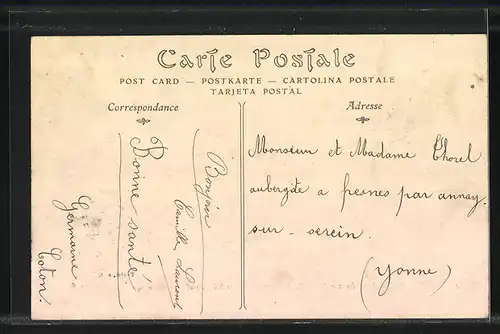 Carte Postale
POST CARD — POSTKARTE — CARTOLINA POSTALE
TARJETA POSTAL
Correspondance
Bonjour
Camille Laurent
Bonne santé
Germaine
Coton.
Adresse
Monsieur et Madame Thorel
aubergite a fresnes par annay
sur - serein.
(Yonne)